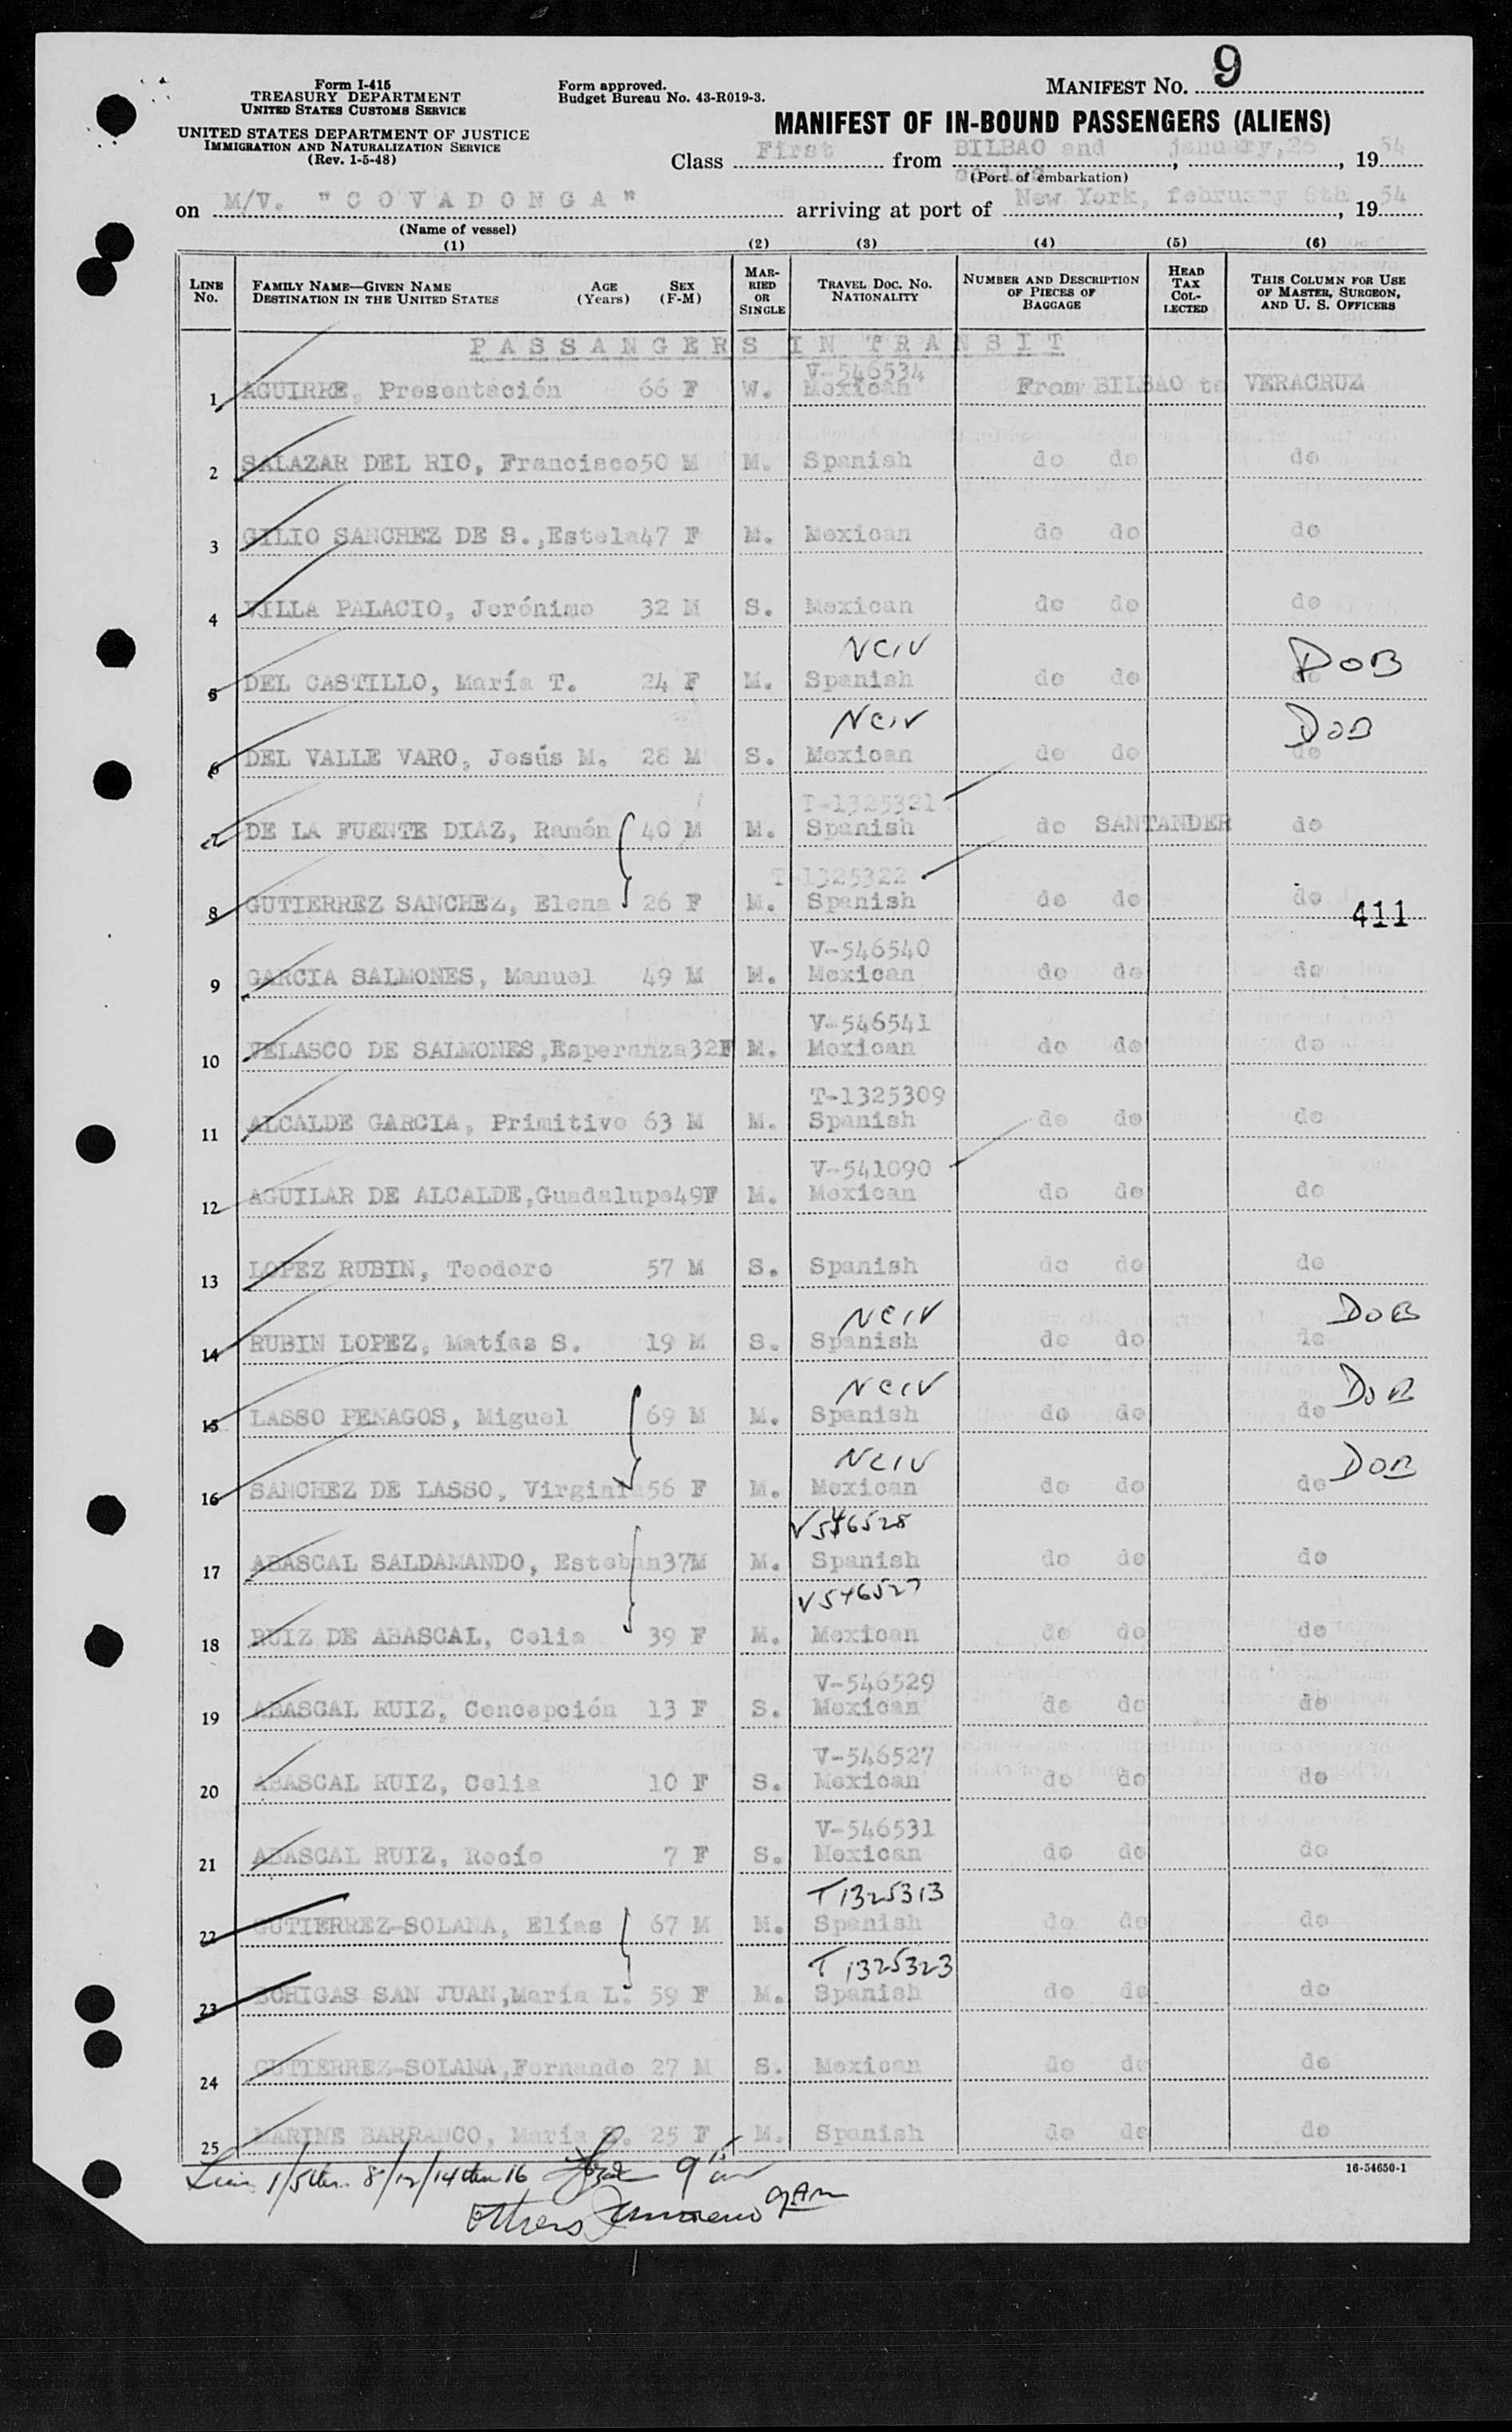 Form I-415
TREASURY DEPARTMENT
UNITED STATES CUSTOMS SERVICE
UNITED STATES DEPARTMENT OF JUSTICE
IMMIGRATION AND NATURALIZATION SERVICE
(Rev. 1-5-48)
Form approved.
Budget Bureau No. 43-R019-3.
MANIFEST No. 9
MANIFEST OF IN-BOUND PASSENGERS (ALIENS)
Class First from BILBAO and january, 26, 1954
(Port of embarkation)
on M/V. "COVADONGA" arriving at port of New York, february 8th, 1954
(Name of vessel)
(1) (2) (3) (4) (5) (6)
LINE No. FAMILY NAME—GIVEN NAME DESTINATION IN THE UNITED STATES AGE (Years) SEX (F-M) MARRIED OR SINGLE TRAVEL DOC. No. NATIONALITY NUMBER AND DESCRIPTION OF PIECES OF BAGGAGE HEAD TAX COLLECTED THIS COLUMN FOR USE OF MASTER, SURGEON, AND U. S. OFFICERS
PASSANGERS IN TRANSIT
V-546534
1 AGUIRRE, Presentación 66 F W. Mexican From BILBAO to VERACRUZ
2 SALAZAR DEL RIO, Francisco 50 M M. Spanish do do do
3 GILIO SANCHEZ DE S., Estela 47 F M. Mexican do do do
4 VILLA PALACIO, Jerónimo 32 M S. Mexican do do do
NCIV
5 DEL CASTILLO, María T. 24 F M. Spanish do do do DOB
NCIV
6 DEL VALLE VARO, Jesús M. 28 M S. Mexican do do do DOB
T-1325321
7 DE LA FUENTE DIAZ, Ramón 40 M M. Spanish do SANTANDER do
T-1325322
8 GUTIERREZ SANCHEZ, Elena 26 F M. Spanish do do do
411
V-546540
9 GARCIA SALMONES, Manuel 49 M M. Mexican do do do
V-546541
10 VELASCO DE SALMONES, Esperanza 32 F M. Mexican do do do
T-1325309
11 ALCALDE GARCIA, Primitivo 63 M M. Spanish do do do
V-541090
12 AGUILAR DE ALCALDE, Guadalupe 49 F M. Mexican do do do
13 LOPEZ RUBIN, Teodoro 57 M S. Spanish do do do
NCIV DOB
14 RUBIN LOPEZ, Matías S. 19 M S. Spanish do do do
NCIV DOB
15 LASSO PENAGOS, Miguel 69 M M. Spanish do do do
NCIV DOB
16 SANCHEZ DE LASSO, Virginia 56 F M. Mexican do do do
V546528
17 ABASCAL SALDAMANDO, Esteban 37 M M. Spanish do do do
V546527
18 RUIZ DE ABASCAL, Celia 39 F M. Mexican do do do
V-546529
19 ABASCAL RUIZ, Concepción 13 F S. Mexican do do do
V-546527
20 ABASCAL RUIZ, Celia 10 F S. Mexican do do do
V-546531
21 ABASCAL RUIZ, Rocío 7 F S. Mexican do do do
T1325313
22 GUTIERREZ-SOLANA, Elías 67 M M. Spanish do do do
T1325323
23 BORIGAS SAN JUAN, María L. 59 F M. Spanish do do do
24 GUTIERREZ-SOLANA, Fernando 27 M S. Mexican do do do
25 MARINE BARRANCO, María 25 F M. Spanish do do do
16-54650-1
8/12/14 thru 16
Others